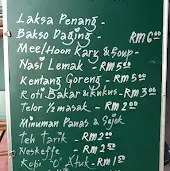 Laksa Penang -
Bakso Daging - RM 6.00
Mee/Hoon Kary & Soup -
Nasi Lemak - RM 5.00
Kentang Goreng - RM 5.00
Roti Bakar & Kukus - RM 3.00
Telor ½ masak - RM 2.00
Minuman Panas & Sejok
Teh Tarik - RM 2.00
Neskeffe - RM 2.50
Kopi 'O' Ktuk - RM 1.50